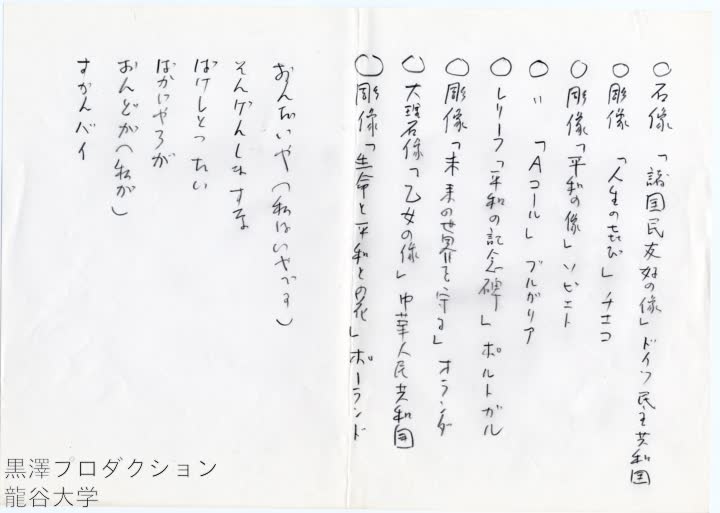 ○ 石像 「諸国民友好の像」ドイツ民主共和国
○ 彫像 「人生の喜び」チエコ
○ 彫像「平和の像」ソビエト
○ 〃 「Aコール」ブルガリア
○ レリーフ「平和の記念碑」ポルトガル
○ 彫像「未来の世界を守る」オランダ
○ 大理石像「乙女の像」中華人民共和国
○ 彫像「生命と平和との花」ポーランド
おんだいや(私はいやです)
そんげんしなすな
ばけしとったい
ばかいやろが
おんどが(私が)
すかんバイ
黒澤プロダクション
龍谷大学